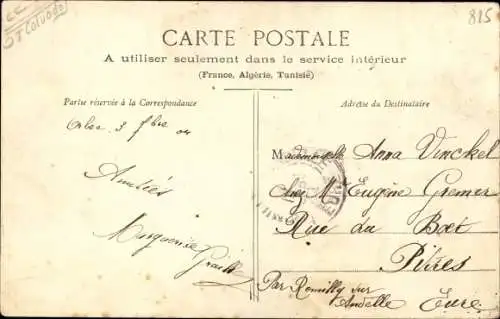 815
Calvados
CARTE POSTALE
A utiliser seulement dans le service intérieur
(France, Algérie, Tunisie)
Partie réservée à la Correspondance
Adresse du Destinataire
Orbec 3 fbre 04
Amitiés
Marguerite
Mademoiselle Anna Vinckel
chez Mr Eugène Gremer
Rue du Boet
Pitres
Par Romilly sur
Andelle Eure